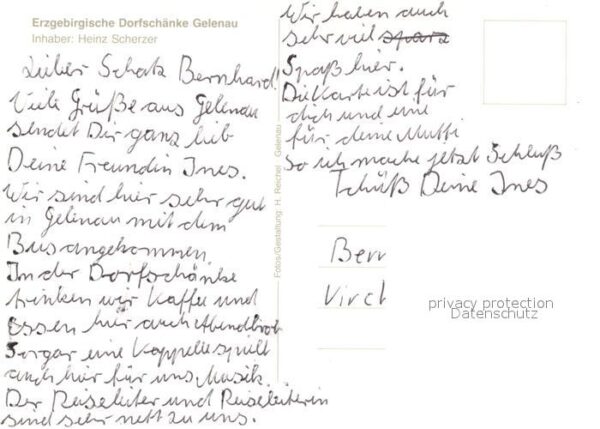 Erzgebirgische Dorfschänke Gelenau
Inhaber: Heinz Scherzer
Lieber Schatz Bernhard!
Viele Grüße aus Gelenau
sendet Dir ganz lieb
Deine Freundin Ines.
Wir sind hier sehr gut
in Gelenau mit dem
Bus angekommen.
In der Dorfschänke
trinken wir Kaffee und
Essen hier auch Abendbrot
Sorgar eine Kappelle spielt
auch hier für uns Musik.
Der Reiseleiter und Reiseleiterin
sind sehr nett zu uns.
Wir haben auch
sehr viel spara
Spaß hier.
Die Karte ist für
dich und eine
für deine Mutti
So ich mache jetzt Schluß
Tchüß Deine Ines
Fotos/Gestaltung: H. Reichel Gelenau
Berr
Virch
privacy protection
Datenschutz